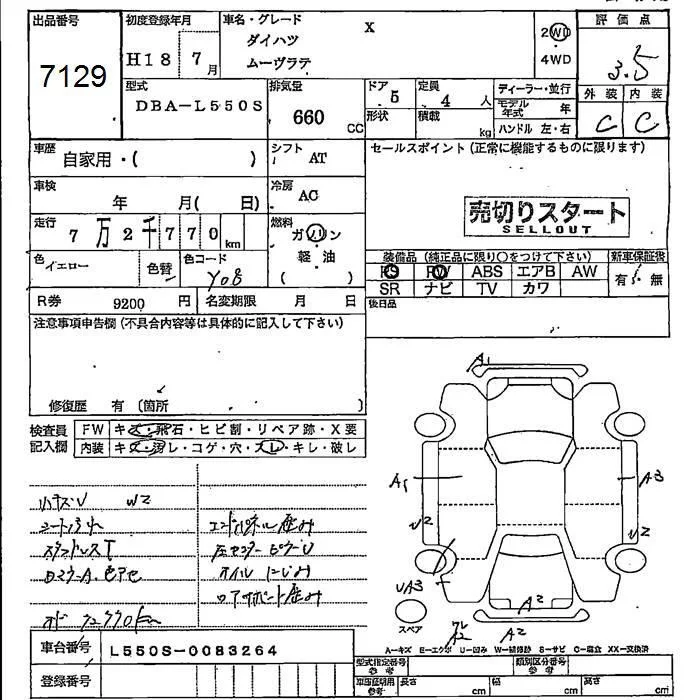 出品番号
7129
初度登録年月
H18 7月
車名・グレード
ダイハツ
ムーヴラテ
X
2WD
4WD
評価点
3.5
型式
DBA-L550S
排気量
660 CC
ドア 5
形状
定員 4 人
積載 kg
ディーラー・並行
モデル年式 年
ハンドル 左・右
外装 内装
C C
車歴
自家用・( )
シフト AT
セールスポイント (正常に機能するものに限ります)
車検 年 月( 日)
冷房 AC
売切りスタート
SELLOUT
走行 7万2千770km
燃料
ガソリン
軽・油
( )
色 イエロー
色替
色コード Y08
装備品 (純正品に限り○をつけて下さい)
新車保証書
PS PW ABS エアB AW
SR ナビ TV カワ
有・無
R券 9200円
名変期限 月 日
後日品
注意事項申告欄 (不具合内容等は具体的に記入して下さい)
修復歴 有 (箇所
検査員記入欄
FW キズ・飛石・ヒビ割・リペア跡・X要
内装 キズ・汚レ・コゲ・穴・スレ・キレ・破レ
A1
A1
A3
U2
U2
UA3
A2
A2
A2
スペア
小キズU W2
シートよごれ
スタッドレスT
エンドパネル歪み
左センターピラーU
オイルにじみ
ロアサポート歪み
色アセ
A-キズ E-エクボ U-凹み W-補修跡 S-サビ C-腐食 XX-交換済
車台番号 L550S-0083264
登録番号
型式指定番号 参考
類別区分番号 参考
車庫証明用 参考
長さ cm
幅 cm
高さ cm